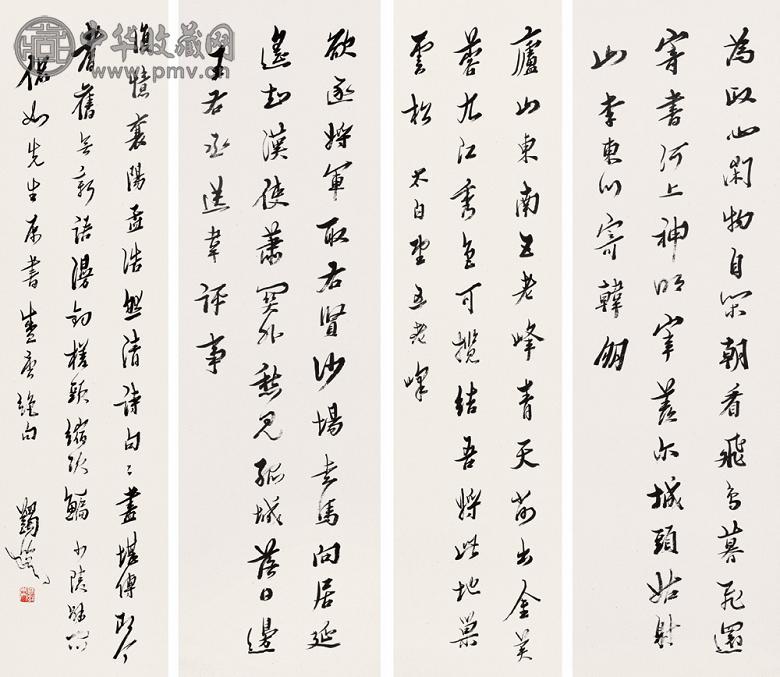 中华收藏网
www.pmv.cn
為政心閑物自閑朝看飛鳥暮飛還
寄書河上神明宰羨尔城頭姑射
山 李東川寄韓鵬
廬山東南五老峰青天削出金芙
蓉九江秀色可攬結吾將此地巢
雲松 太白望五老峰
欲逐將軍取右賢沙場走馬問居延
遙知漢使蕭關外愁見孤城落日邊
王右丞送韋評事
復憶襄陽孟浩然清詩句〻盡堪傳即今
耆舊無新語漫釣槎頭縮項鯿 少陵解悶
先生屬書盛唐絕句 蠲叟